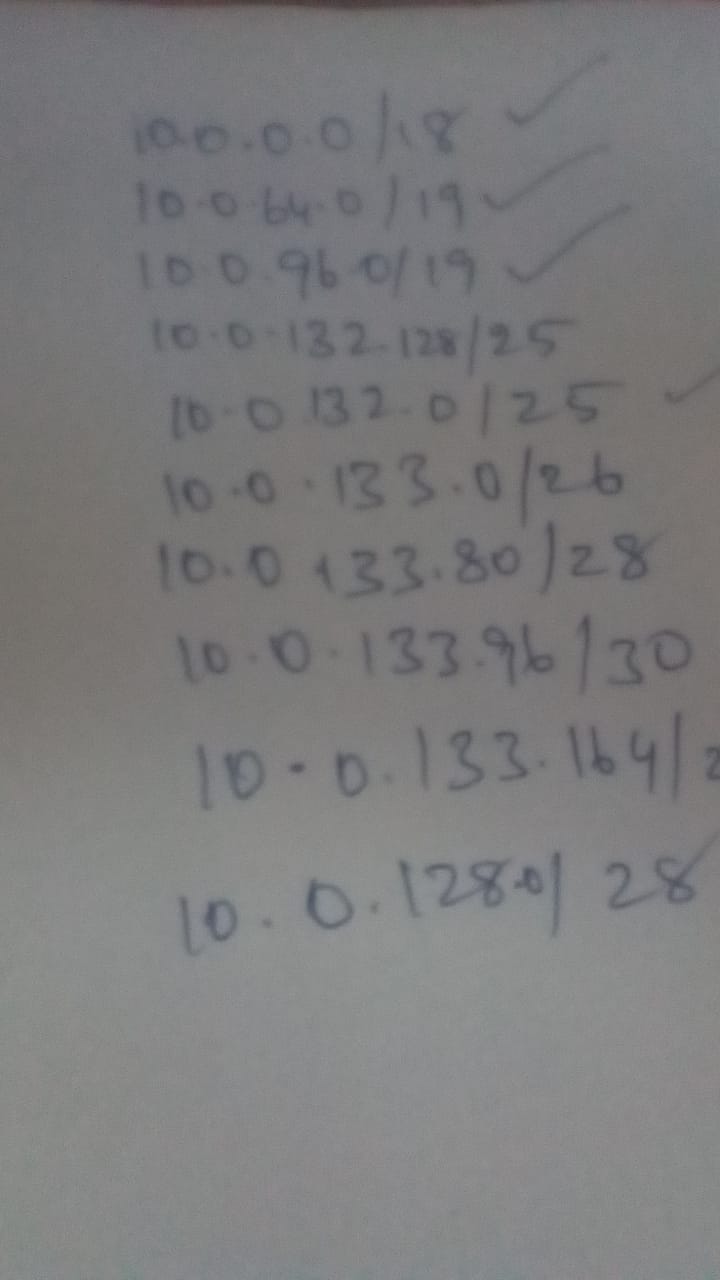 10.0.0.0/18 ✓
10.0.64.0/19 ✓
10.0.96.0/19 ✓
10.0.132.128/25
10.0.132.0/25 ✓
10.0.133.0/26
10.0.133.80/28
10.0.133.96/30
10.0.133.164/2
10.0.128.0/28